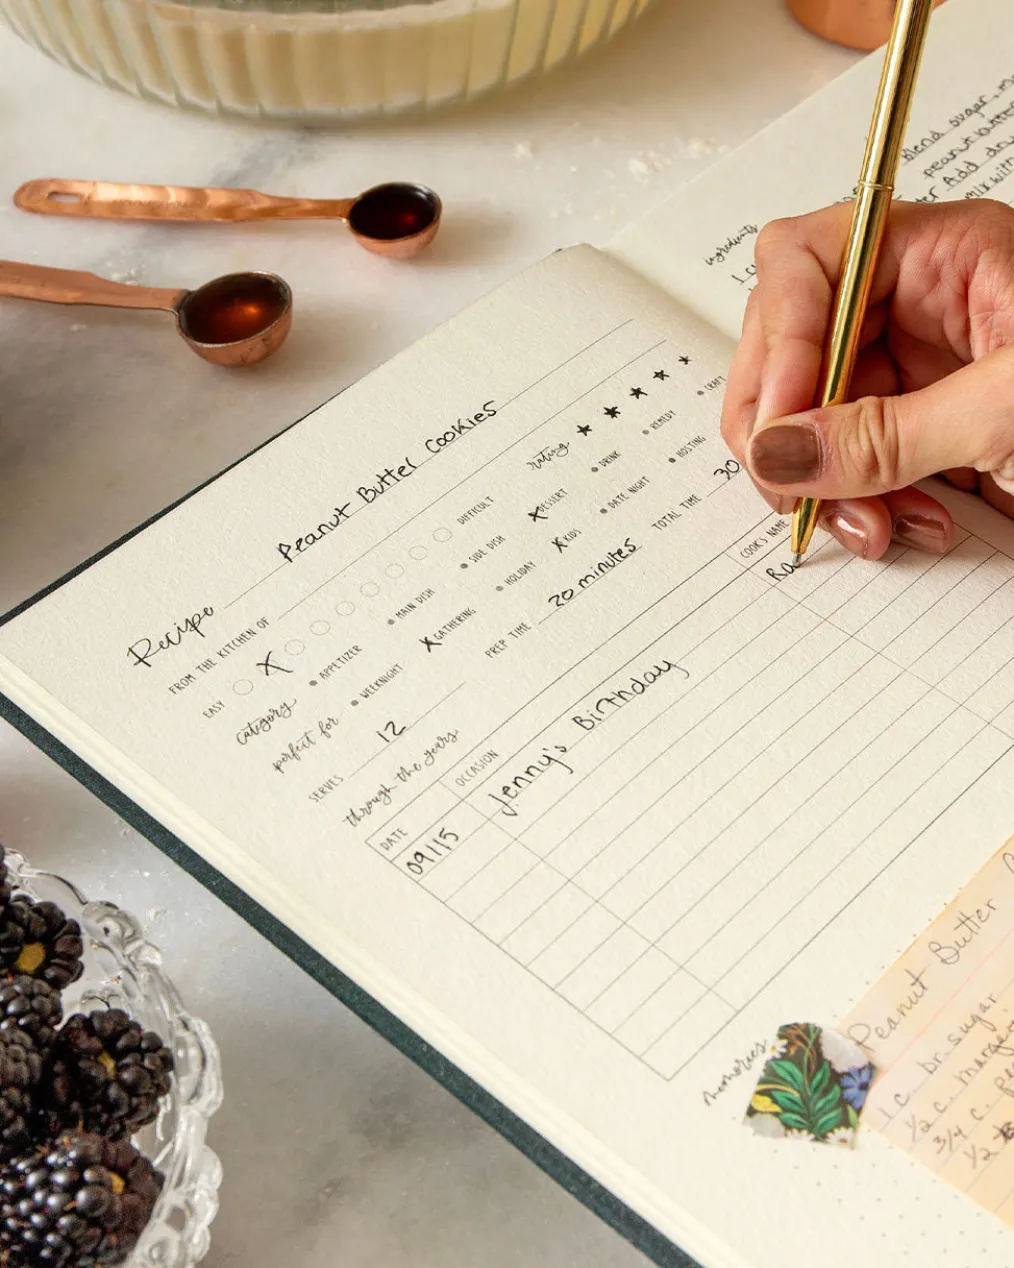 Recipe Peanut Butter Cookies
FROM THE KITCHEN OF
rating ★ ★ ★ ★ ★
EASY X DIFFICULT
category APPETIZER MAIN DISH SIDE DISH X DESSERT DRINK REMEDY CRAFT
perfect for WEEKNIGHT X GATHERING HOLIDAY X KIDS DATE NIGHT HOSTING
SERVES 12 PREP TIME 20 minutes TOTAL TIME 30
through the years
DATE OCCASION COOK'S NAME
09/15 Jenny's Birthday Ra
memories
ingredients
Blend sugar, m
peanut butter
Add dr
mix with
Peanut Butter
1 c. br. sugar
1/2 c. marga
3/4 c. pe
1/2